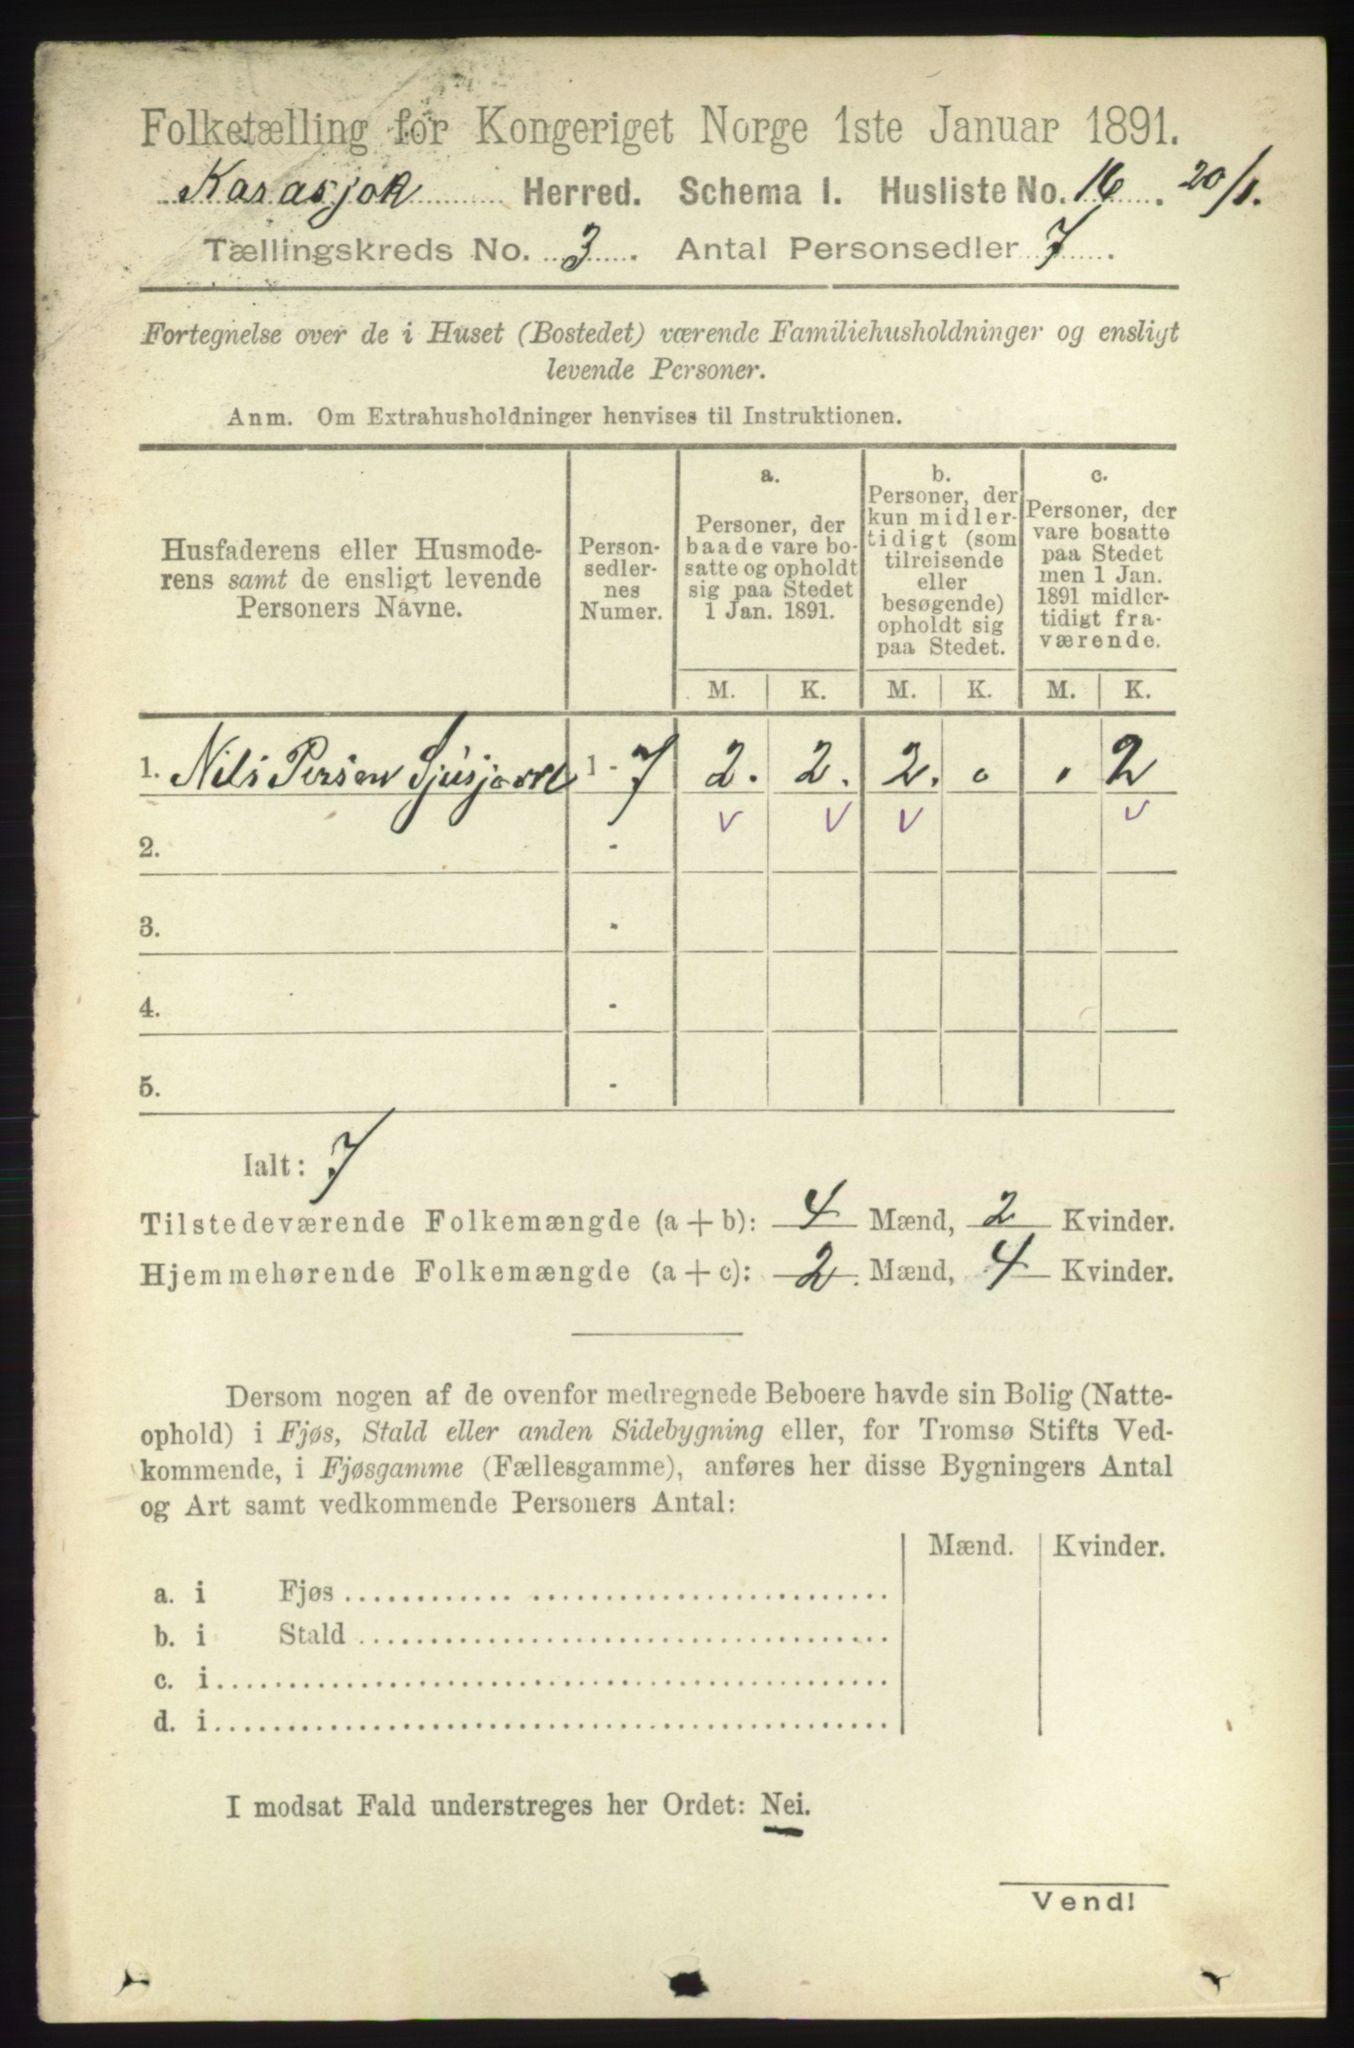 Folketælling for Kongeriget Norge 1ste Januar 1891.
Karasjok Herred. Schema I. Husliste No. 16. 20/1.
Tællingskreds No. 3. Antal Personsedler 7.
Fortegnelse over de i Huset (Bostedet) værende Familiehusholdninger og ensligt
levende Personer.
Anm. Om Extrahusholdninger henvises til Instruktionen.
Husfaderens eller Husmode-
rens samt de ensligt levende
Personers Navne.
Person-
sedler-
nes
Numer.
a.
Personer, der
baade vare bo-
satte og opholdt
sig paa Stedet
1 Jan. 1891.
b.
Personer, der
kun midler-
tidigt (som
tilreisende
eller
besøgende)
opholdt sig
paa Stedet.
c.
Personer, der
vare bosatte
paa Stedet
men 1 Jan.
1891 midler-
tidigt fra-
værende.
M. K. M. K. M. K.
1. Nils Persen 1 - 7 2. 2. 2. 0 . 2
v v v v
2. -
3. -
4. -
5. -
Ialt: 7
Tilstedeværende Folkemængde (a + b): 4 Mænd, 2 Kvinder.
Hjemmehørende Folkemængde (a + c): 2. Mænd, 4 Kvinder.
Dersom nogen af de ovenfor medregnede Beboere havde sin Bolig (Natte-
ophold) i Fjøs, Stald eller anden Sidebygning eller, for Tromsø Stifts Ved-
kommende, i Fjøsgamme (Fællesgamme), anføres her disse Bygningers Antal
og Art samt vedkommende Personers Antal:
Mænd. Kvinder.
a. i Fjøs
b. i Stald
c. i
d. i
I modsat Fald understreges her Ordet: Nei.
Vend!